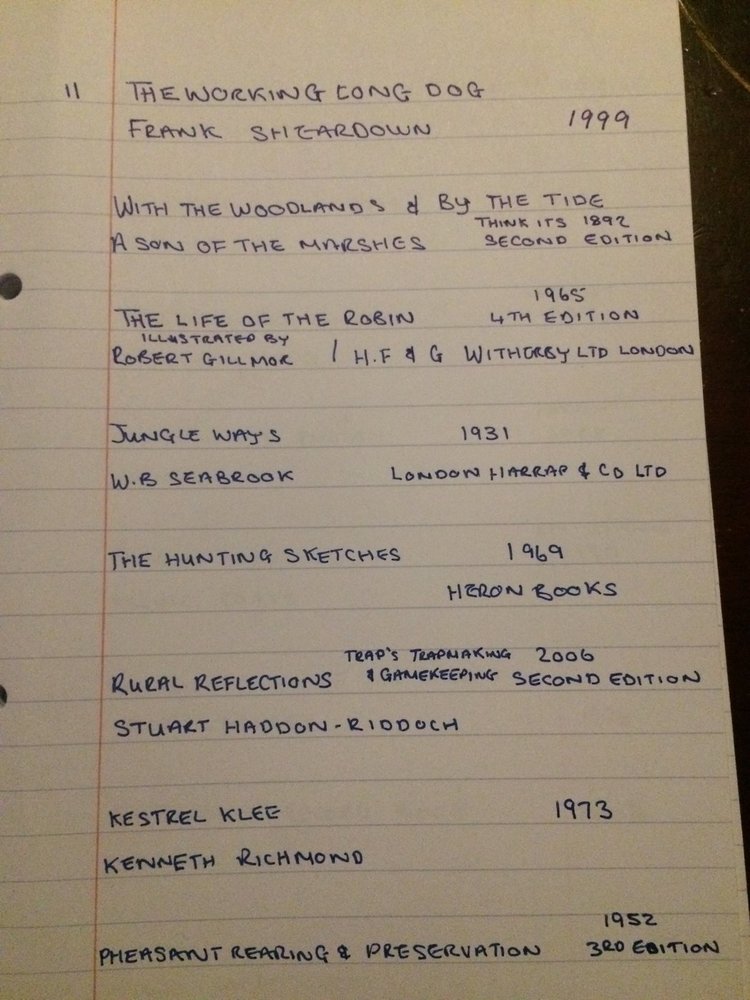 11 THE WORKING LONG DOG
FRANK SHEARDOWN 1999
WITH THE WOODLANDS & BY THE TIDE
THINK ITS 1892
A SON OF THE MARSHES SECOND EDITION
1965
THE LIFE OF THE ROBIN 4TH EDITION
ILLUSTRATED BY
ROBERT GILLMOR / H.F & G WITHERBY LTD LONDON
JUNGLE WAYS 1931
W.B SEABROOK LONDON HARRAP & CO LTD
THE HUNTING SKETCHES 1969
HERON BOOKS
TRAP'S TRAPMAKING 2006
RURAL REFLECTIONS & GAMEKEEPING SECOND EDITION
STUART HADDON-RIDDOCH
KESTREL KLEE 1973
KENNETH RICHMOND
1952
PHEASANT REARING & PRESERVATION 3RD EDITION